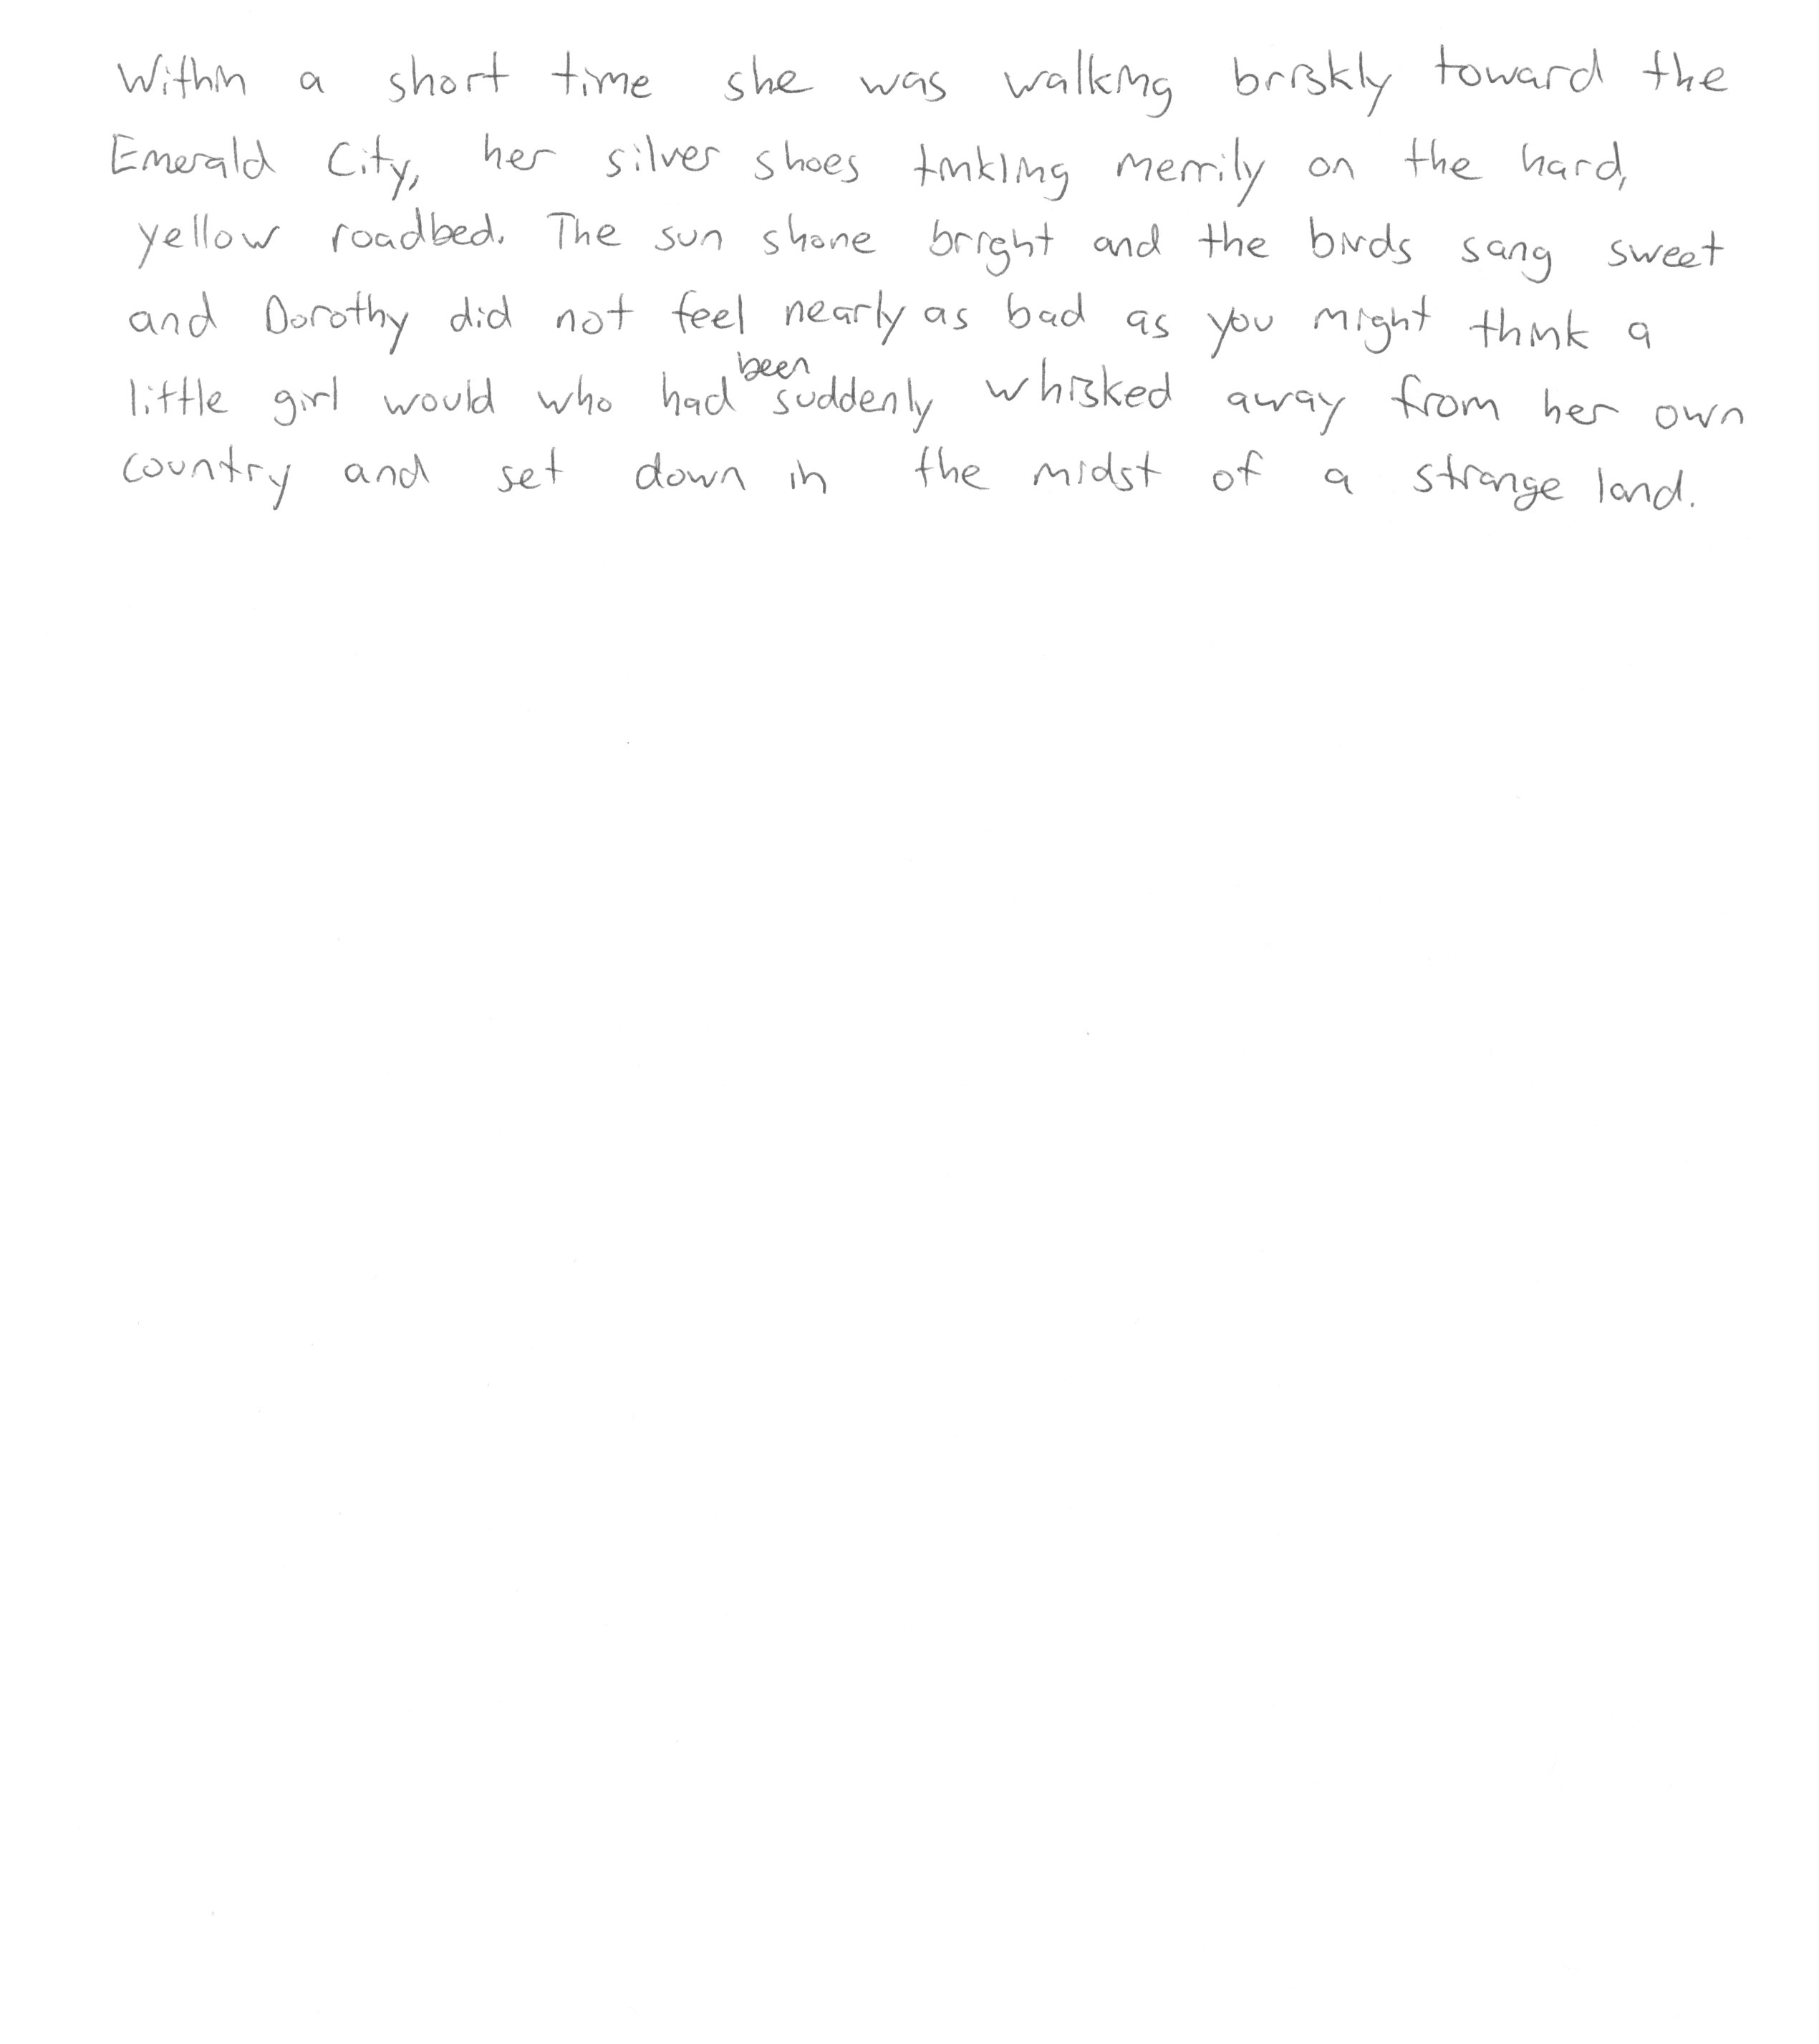 Within a short time she was walking briskly toward the
Emerald City, her silver shoes tinkling merrily on the hard,
yellow roadbed. The sun shone bright and the birds sang sweet
and Dorothy did not feel nearly as bad as you might think a
little girl would who had been suddenly whisked away from her own
country and set down in the midst of a strange land.